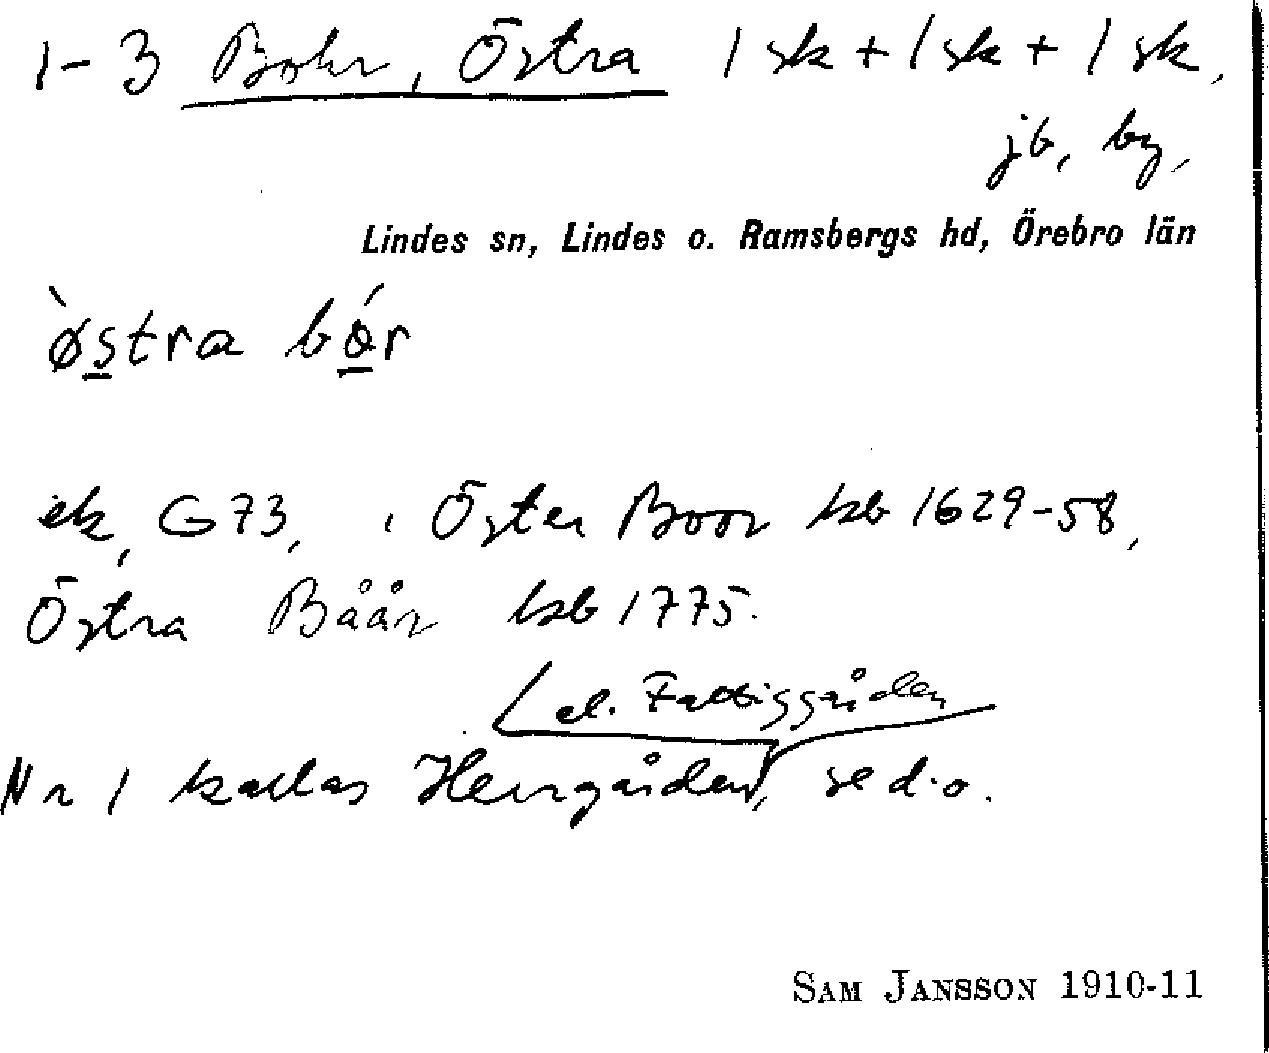 1-3 Bohr, Östra 1 sk + 1 sk + 1 sk,
jb, by,
Lindes sn, Lindes o. Ramsbergs hd, Örebro län
`østra bǿr
ek, G73, i Öster Boor ksb 1629-58,
Östra Båår ksb 1775.
el. Fattiggården
Nr 1 kallas Herrgården, se d.o.
SAM JANSSON 1910-11